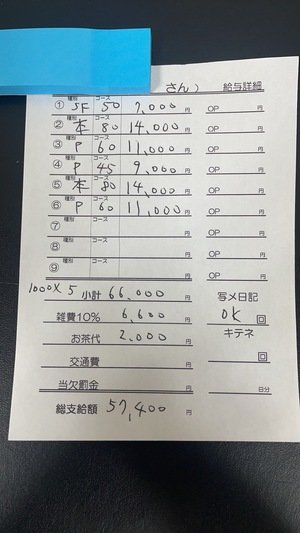 さん) 給与詳細
① 種別 SF コース 50 7,000円 OP 円
② 種別 本 コース 80 14,000円 OP 円
③ 種別 P コース 60 11,000円 OP 円
④ 種別 P コース 45 9,000円 OP 円
⑤ 種別 本 コース 80 14,000円 OP 円
⑥ 種別 P コース 60 11,000円 OP 円
⑦ 種別 コース 円 OP 円
⑧ 種別 コース 円 OP 円
⑨ 種別 コース 円 OP 円
1000×5 小計 66,000円 写メ日記
雑費10% 6,600円 OK 回
お茶代 2,000円 キテネ
交通費 円 回
当欠罰金 円 日分
総支給額 57,400円